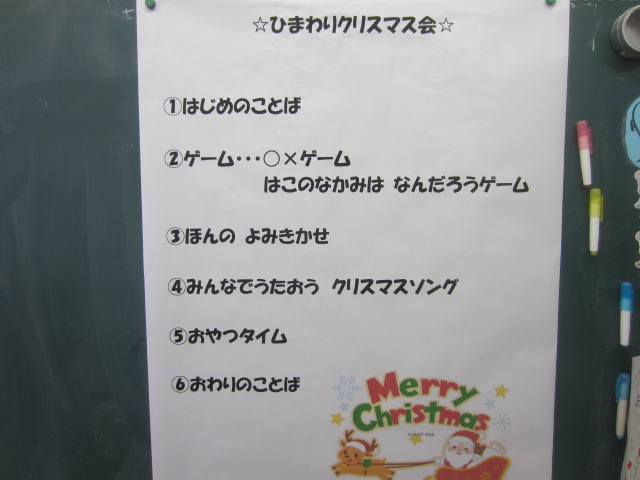 ☆ひまわりクリスマス会☆
①はじめのことば
②ゲーム・・・○×ゲーム
はこのなかみは なんだろうゲーム
③ほんの よみきかせ
④みんなでうたおう クリスマスソング
⑤おやつタイム
⑥おわりのことば
Merry
Christmas